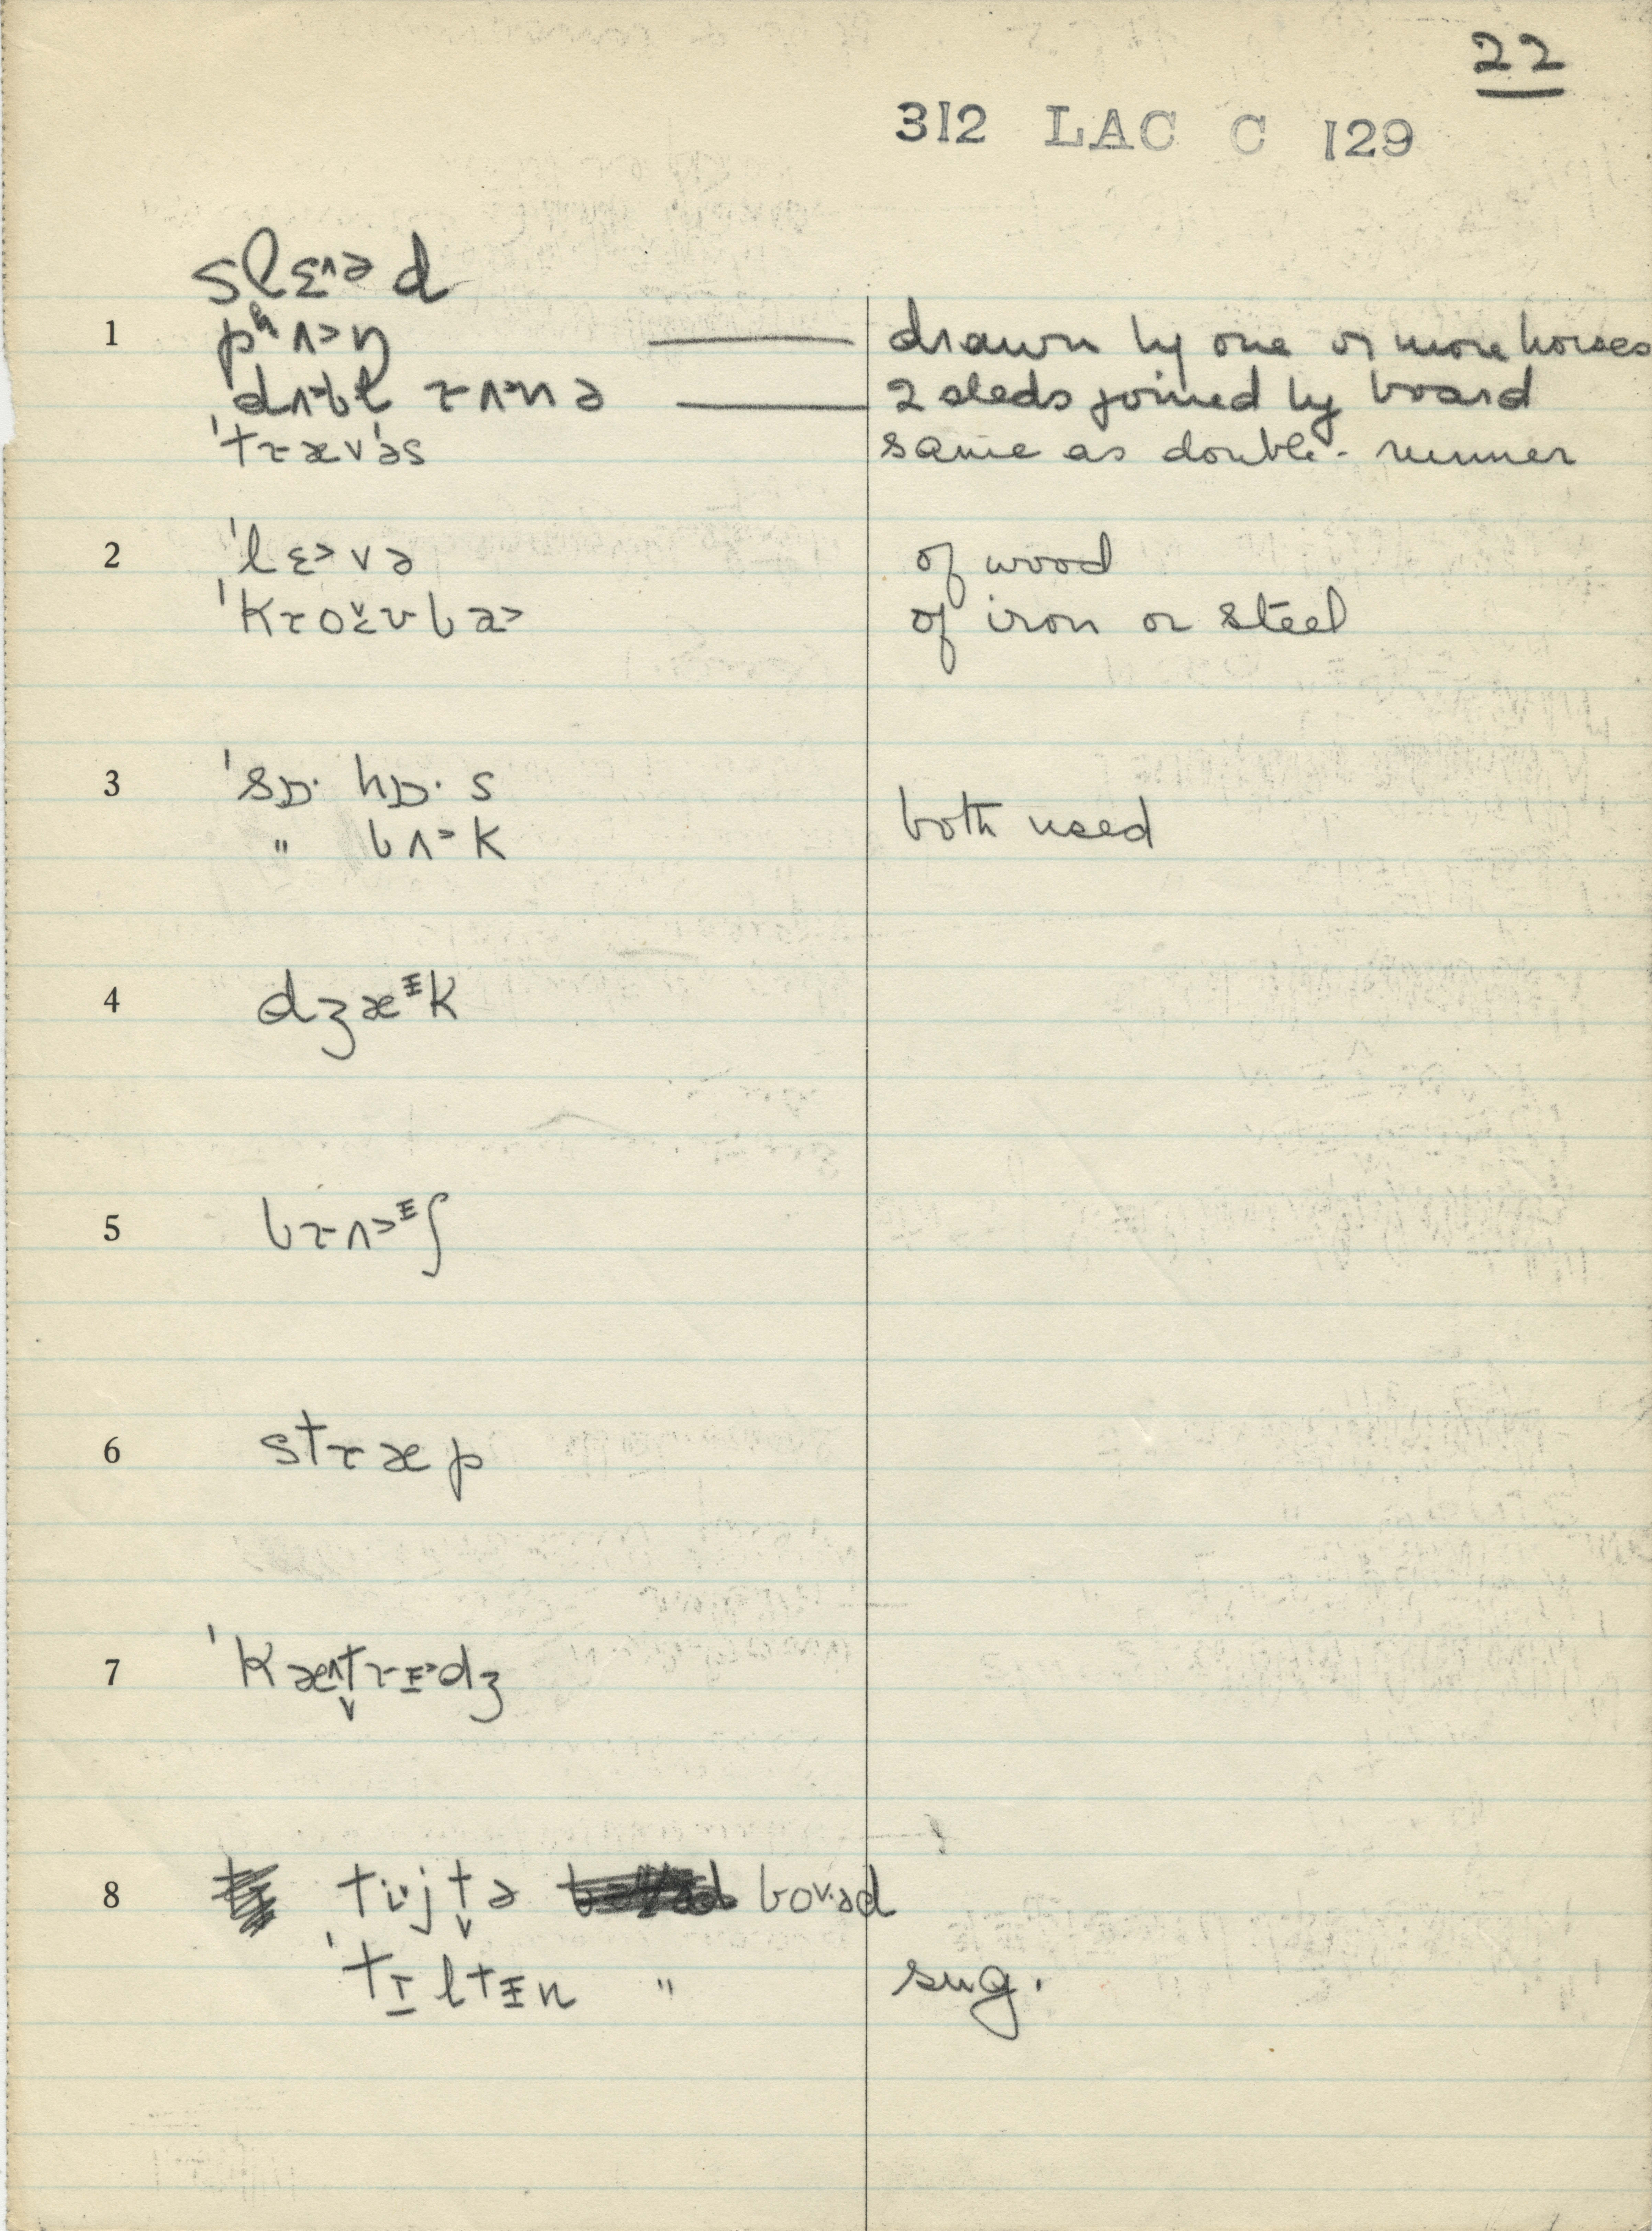 22
312 LAC C 129
slɛ^ə d
1 pʰʌ>ŋ —— drawn by one or more horses
dʌ>bɫ rʌ>nə —— 2 sleds joined by board
'trævəs same as double-runner
2 'lɛ>və of wood
'kroʊbɑ> of iron or steel
3 'sɒ· hɒ· s
" bʌ>k both used
4 dʒæᵻk
5 brʌ>ᵻʃ
6 stræp
7 'kæ^t̬rᵻ>dʒ
8 tijt̬ə bov·əd
'tɪltᵻn " sug.